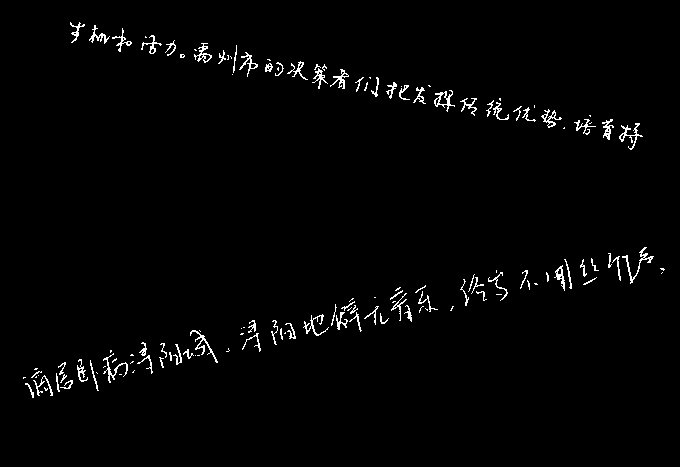 生机和活力。禹州市的决策者们把发挥传统优势、培育特
谪居卧病浔阳城，浔阳地僻无音乐，终岁不闻丝竹声，